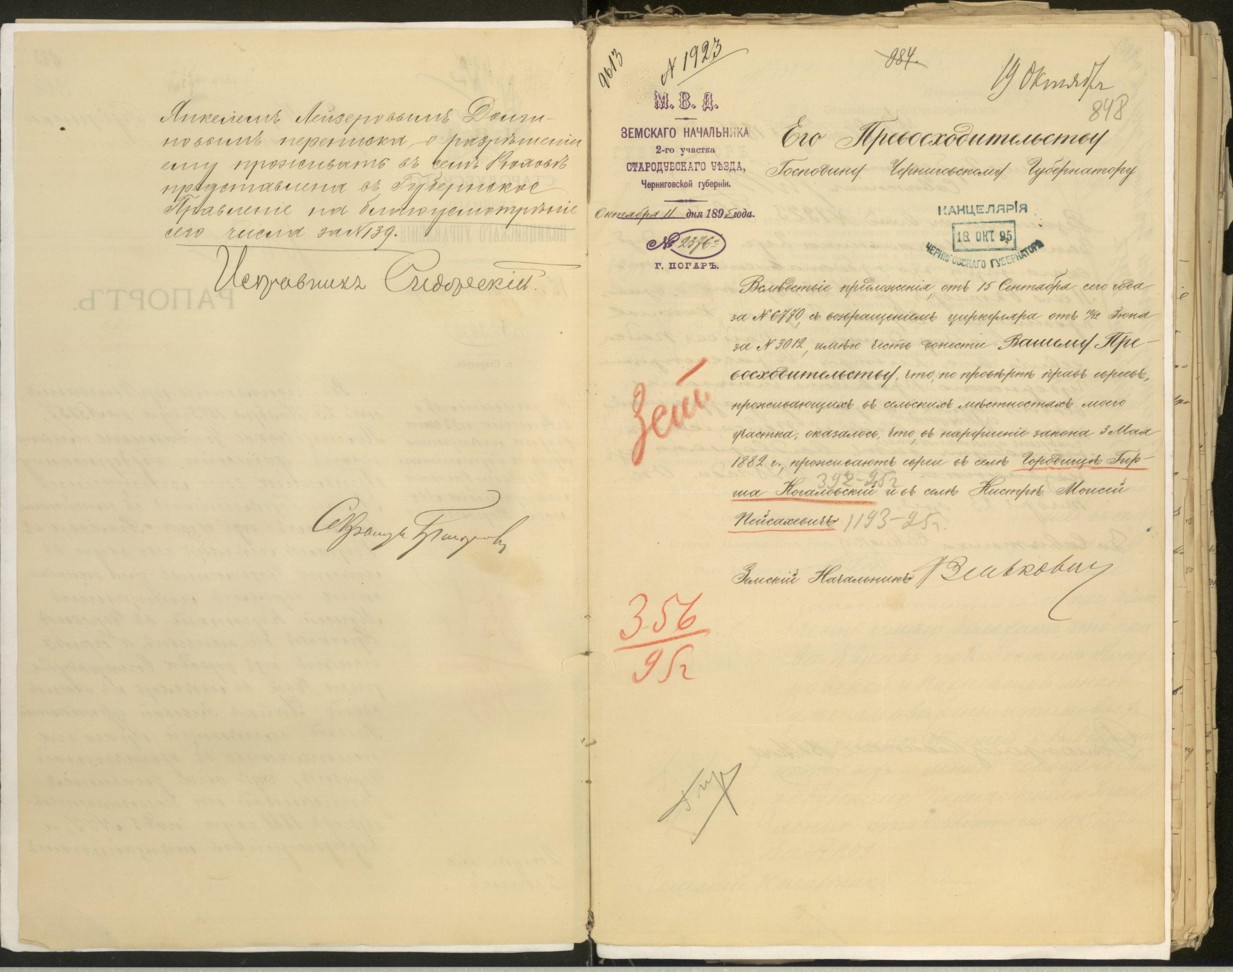 Янкелемъ Лейзеровымъ Долги-
новымъ переписка о разрѣшеніи
ему проживать въ селѣ
представлена въ Губернское
Правленіе на благоусмотрѣніе
сего числа за № 139.
Исправникъ
Секретарь
№ 1923
984
19 Октября
848
М. В. Д.
ЗЕМСКАГО НАЧАЛЬНИКА
2-го участка
СТАРОДУБСКАГО УѢЗДА,
Черниговской губерніи.
Октября 11 дня 1895 года.
№ 2376
г. ПОГАРЪ.
Его Превосходительству
Господину Черниговскому Губернатору
КАНЦЕЛЯРІЯ
18 ОКТ. 95
ЧЕРНИГОВСКАГО ГУБЕРНАТОРА
Вслѣдствіе предложенія, отъ 15 Сентября сего года
за № 6770, съ возвращеніемъ циркуляра отъ Іюня
за № 3012, имѣю честь донести Вашему Пре-
восходительству, что, по провѣркѣ правъ евреевъ,
проживающихъ въ сельскихъ мѣстностяхъ моего
участка, оказалось, что, въ нарушеніе закона 3 Мая
1882 г., проживаютъ евреи въ селѣ Городищѣ Гир-
ша Когаловскій и въ селѣ Кистрѣ Моисей
392-95г
Пейсаховичъ 1193-95г.
Земскій Начальникъ
356
95г